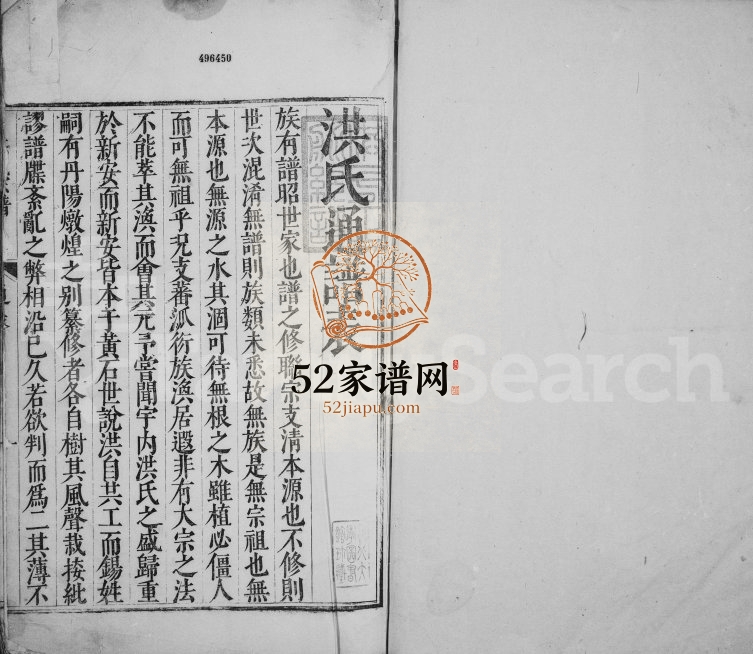 496450
洪氏通譜表
族有譜昭世家也譜之修聯宗支清本源也不修則
世次混淆無譜則族類未悉故無族是無宗祖也無
本源也無源之水其涸可待無根之木雖植必僵人
而可無祖乎況支蕃派衍族渙居遐非有大宗之法
不能萃其渙而會其元予嘗聞宇內洪氏之盛歸重
於新安而新安皆本于黃石世說洪自共工而錫姓
嗣有丹陽燉煌之別纂修者各自樹其風聲栽接紕
謬譜牒紊亂之弊相沿已久若欲判而爲二其薄不
52家谱网
52jiapu.com
Search